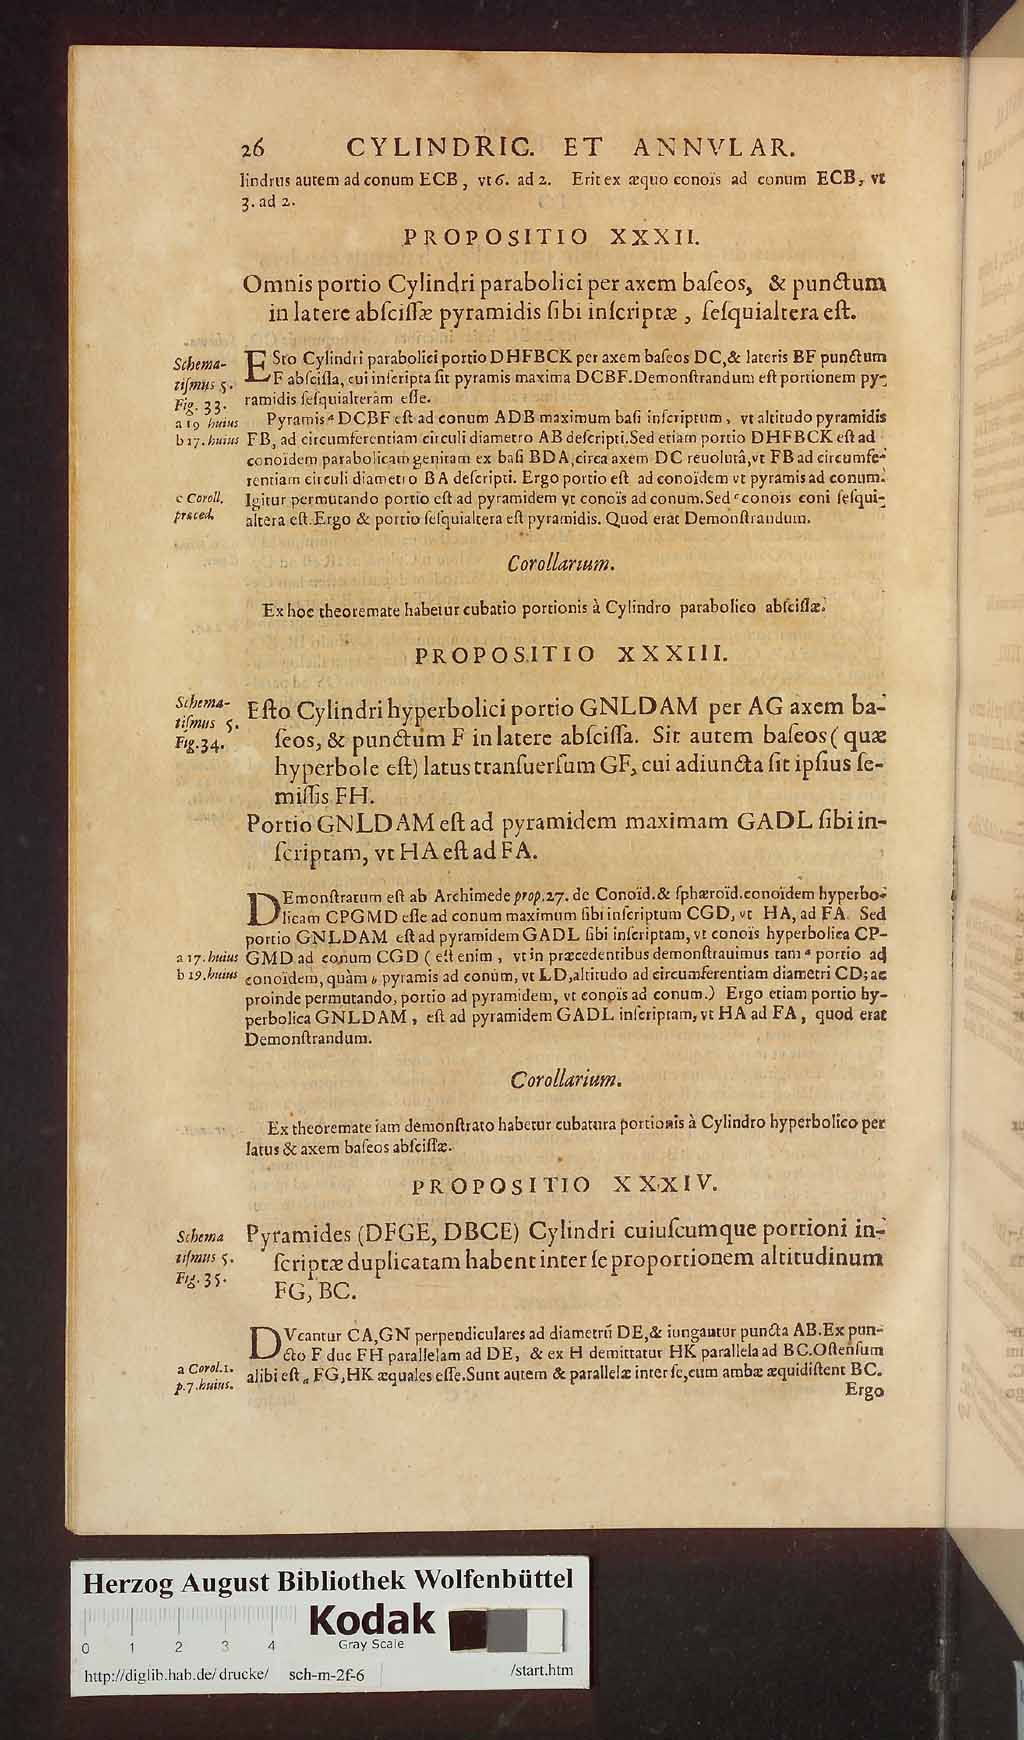 26 CYLINDRIC. ET ANNVLAR.
lindrus autem ad conum ECB, vt 6. ad 2. Erit ex æquo conoïs ad conum ECB, vt
3. ad 2.
PROPOSITIO XXXII.
Omnis portio Cylindri parabolici per axem baſeos, & punctum
in latere abſciſſæ pyramidis ſibi inſcriptæ, ſeſquialtera eſt.
Schema-
tiſmus 5.
Fig. 33.
a 19 huius
b 17. huius
c Coroll.
præced.
ESto Cylindri parabolici portio DHFBCK per axem baſeos DC,& lateris BF punctum
F abſciſſa, cui inſcripta ſit pyramis maxima DCBF.Demonſtrandum eſt portionem py-
ramidis ſeſquialteram eſſe.
Pyramis a DCBF eſt ad conum ADB maximum baſi inſcriptum, vt altitudo pyramidis
FB, ad circumferentiam circuli diametro AB deſcripti.Sed etiam portio DHFBCK eſt ad
conoïdem parabolicam genitam ex baſi BDA,circa axem DC reuolutâ,vt FB ad circumfe-
rentiam circuli diametro BA deſcripti. Ergo portio eſt ad conoïdem vt pyramis ad conum.
Igitur permutando portio eſt ad pyramidem vt conoïs ad conum.Sed c conoïs coni ſeſqui-
altera eſt.Ergo & portio ſeſquialtera eſt pyramidis. Quod erat Demonſtrandum.
Corollarium.
Ex hoc theoremate habetur cubatio portionis à Cylindro parabolico abſciſſæ.
PROPOSITIO XXXIII.
Schema-
tiſmus 5.
Fig. 34.
Eſto Cylindri hyperbolici portio GNLDAM per AG axem ba-
ſeos, & punctum F in latere abſciſſa. Sit autem baſeos ( quæ
hyperbole eſt) latus tranſuerſum GF, cui adiuncta ſit ipſius ſe-
miſſis FH.
Portio GNLDAM eſt ad pyramidem maximam GADL ſibi in-
ſcriptam, vt HA eſt ad FA.
DEmonſtratum eſt ab Archimede prop.27. de Conoïd.& ſphæroïd.conoïdem hyperbo-
licam CPGMD eſſe ad conum maximum ſibi inſcriptum CGD, vt HA, ad FA. Sed
portio GNLDAM eſt ad pyramidem GADL ſibi inſcriptam, vt conoïs hyperbolica CP-
a 17. huius GMD ad conum CGD ( eſt enim, vt in præcedentibus demonſtrauimus tam a portio ad
b 19. huius conoïdem, quàm b pyramis ad conum, vt LD,altitudo ad circumferentiam diametri CD; ac
proinde permutando, portio ad pyramidem, vt conoïs ad conum.) Ergo etiam portio hy-
perbolica GNLDAM, eſt ad pyramidem GADL inſcriptam, vt HA ad FA, quod erat
Demonſtrandum.
Corollarium.
Ex theoremate iam demonſtrato habetur cubatura portionis à Cylindro hyperbolico per
latus & axem baſeos abſciſſæ.
PROPOSITIO XXXIV.
Schema
tiſmus 5.
Fig. 35.
Pyramides (DFGE, DBCE) Cylindri cuiuſcumque portioni in-
ſcriptæ duplicatam habent inter ſe proportionem altitudinum
FG, BC.
DVcantur CA,GN perpendiculares ad diametrũ DE,& iungantur puncta AB.Ex pun-
cto F duc FH parallelam ad DE, & ex H demittatur HK parallela ad BC.Oſtenſum
a Corol.1.
p.7.huius.
alibi eſt a FG,HK æquales eſſe.Sunt autem & parallelæ inter ſe,cum ambæ æquidiſtent BC.
Ergo
Herzog August Bibliothek Wolfenbüttel
Kodak
Gray Scale
0 1 2 3 4
http://diglib.hab.de/drucke/ sch-m-2f-6 /start.htm